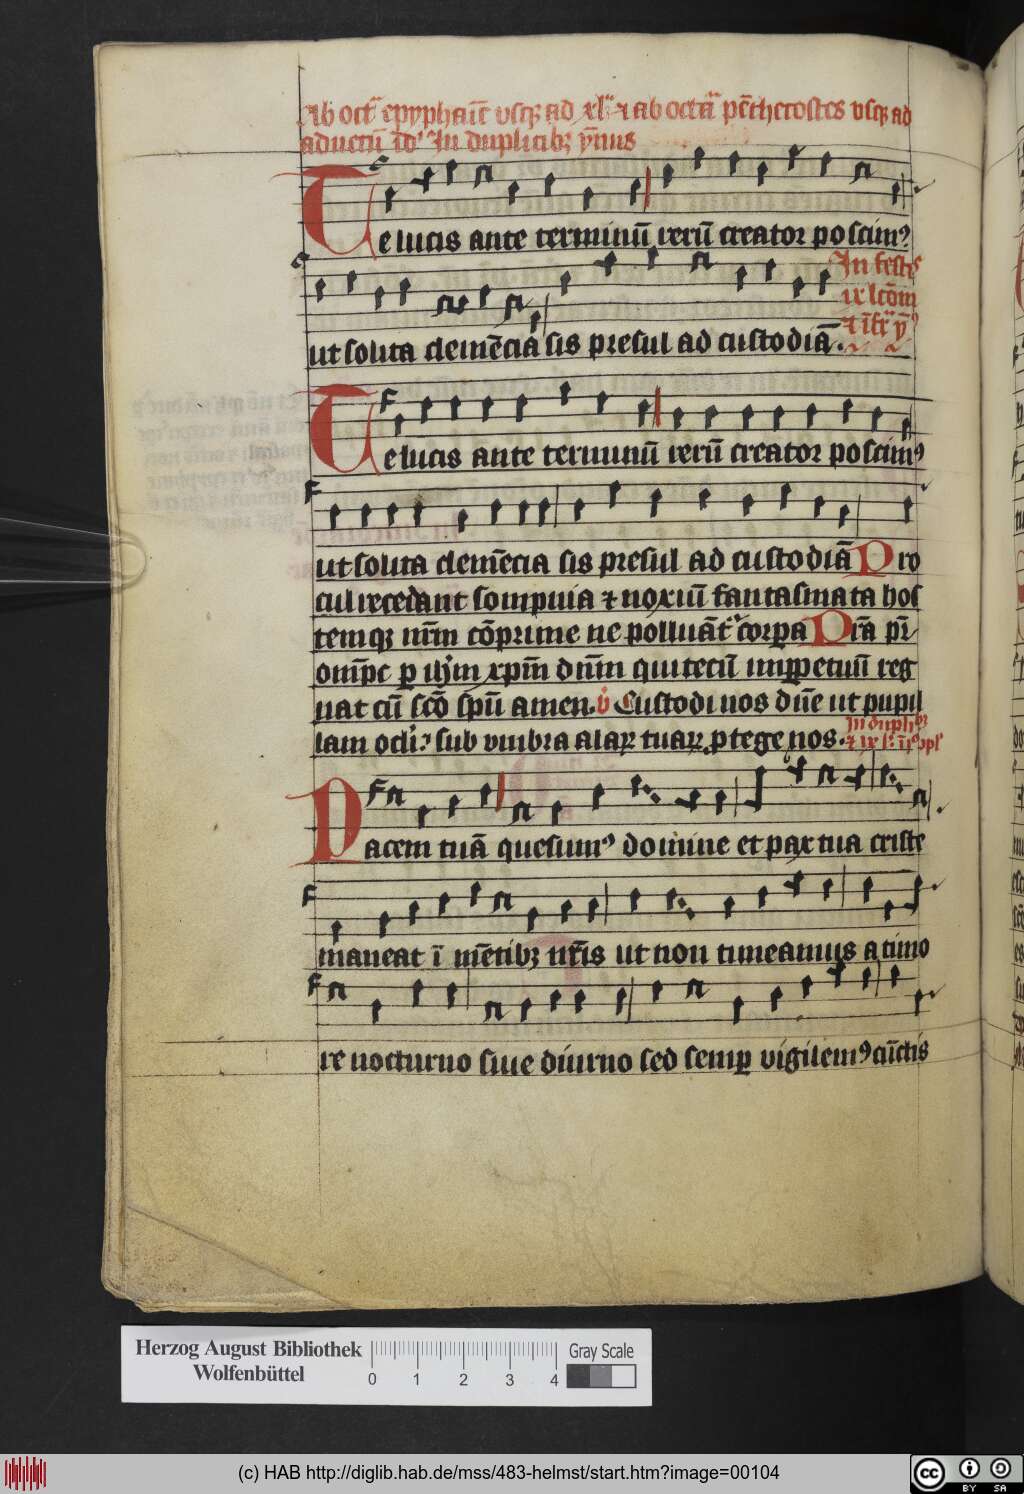 Ab oct̄ epyphaīe usq; ad xl͞ ⁊ ab octā pēthecostes usq; ad
aduentū id' In duplicib; ȳnus
Te lucis ante terminū rerū creator poscimꝰ
In festis
ix lc̄om
ut solita clemēcia sis presul ad custodiā.
Te lucis ante terminū rerū creator poscimꝰ
ut solita clemēcia sis presul ad custodiā Pro
cul recedant sompnia ⁊ noxiū fantasmata hos
temq; nr̄m cōprime ne polluāt͛ corpa Pr̄a pr̄
omp̄c ꝑ ihm xpm̄ dnm̄ qui tecū inꝑpetuū reg
nat cū sc̄o spū amen. v̇ Custodi nos dn̄e ut pupil
lam ocłi. sub vmbra alaꝝ tuaꝝ ꝓtege nos.
In duplꝰ
Pacem tuā quesumꝰ domine et pax tua criste
maneat ī mētib; nr̄is ut non timeamus a timo
re nocturno siue diurno sed semꝑ vigilemꝰ cūctis
Herzog August Bibliothek
Wolfenbüttel
Gray Scale
0 1 2 3 4
(c) HAB http://diglib.hab.de/mss/483-helmst/start.htm?image=00104
cc BY SA